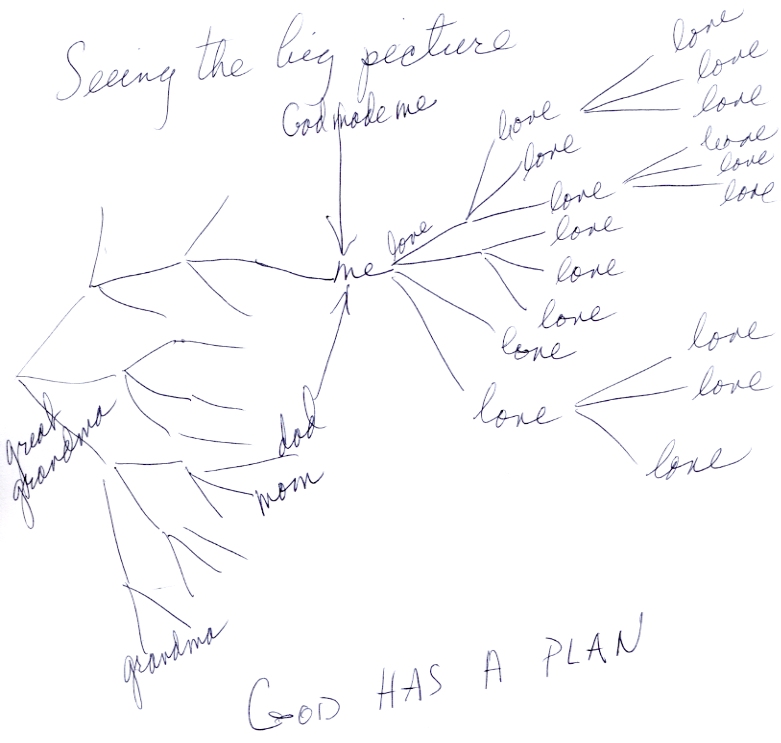 Seeing the big picture
God made me
love
love
love
love
love
love
love
love
love
love
love
me
love
love
love
love
love
love
love
love
great
grandma
dad
mom
grandma
GOD HAS A PLAN